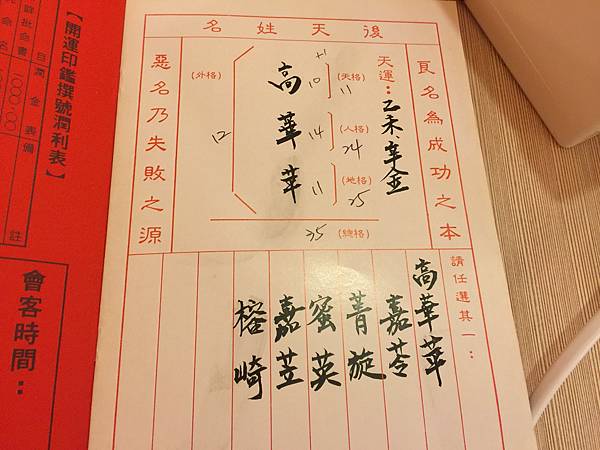 後天姓名
良名為成功之本
天運：乙未．辛金
+1
高 10 (天格) 11
華 14 (人格) 24
苹 11 (地格) 25
(外格) 12
35 (總格)
惡名乃失敗之源
請任選其一：
高華苹
嘉苓
菁旋
蜜英
嘉苙
榕崎
【開運印鑑撰號潤利表】
會客時間：